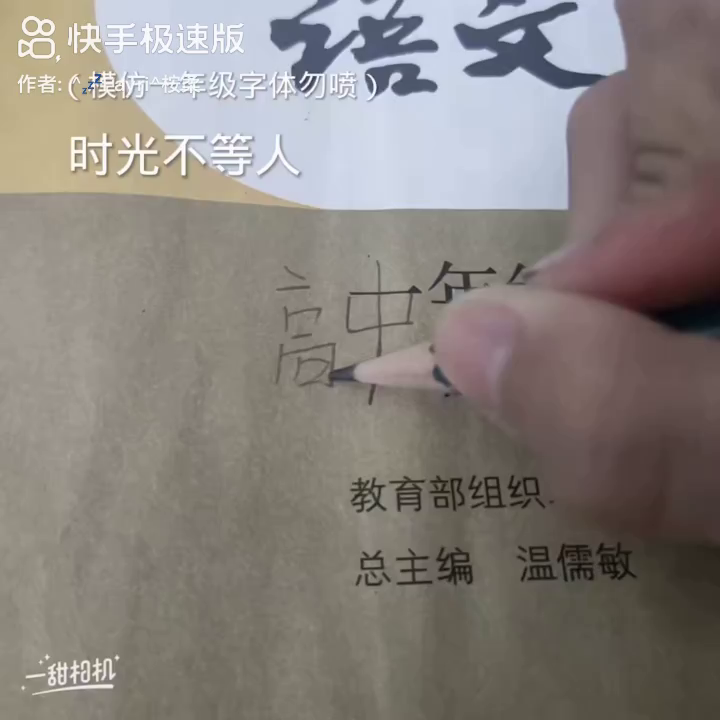 快手极速版
语文
(模仿一年级字体勿喷)
时光不等人
高中一年
教育部组织
总主编 温儒敏
一甜相机